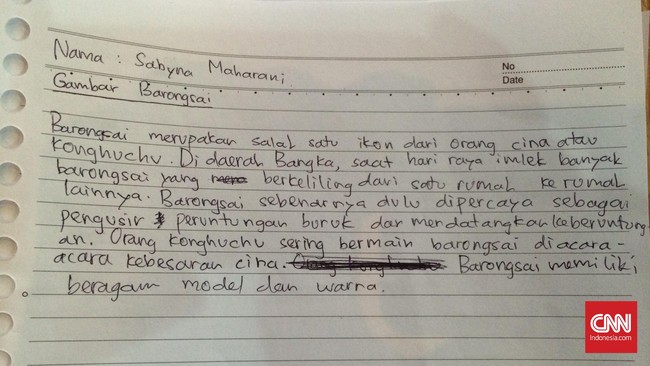 Nama : Sabyna Maharani
No
Date
Gambar Barongsai
Barongsai merupakan salah satu ikon dari orang cina atau
konghuchu. Di daerah Bangka, saat hari raya imlek banyak
barongsai yang berkeliling dari satu rumah ke rumah
lainnya. Barongsai sebenarnya dulu dipercaya sebagai
pengusir peruntungan buruk dan mendatangkan keberuntung
an. Orang konghuchu sering bermain barongsai diacara-
acara kebesaran cina. Barongsai memiliki
beragam model dan warna.
CNN
Indonesia.com